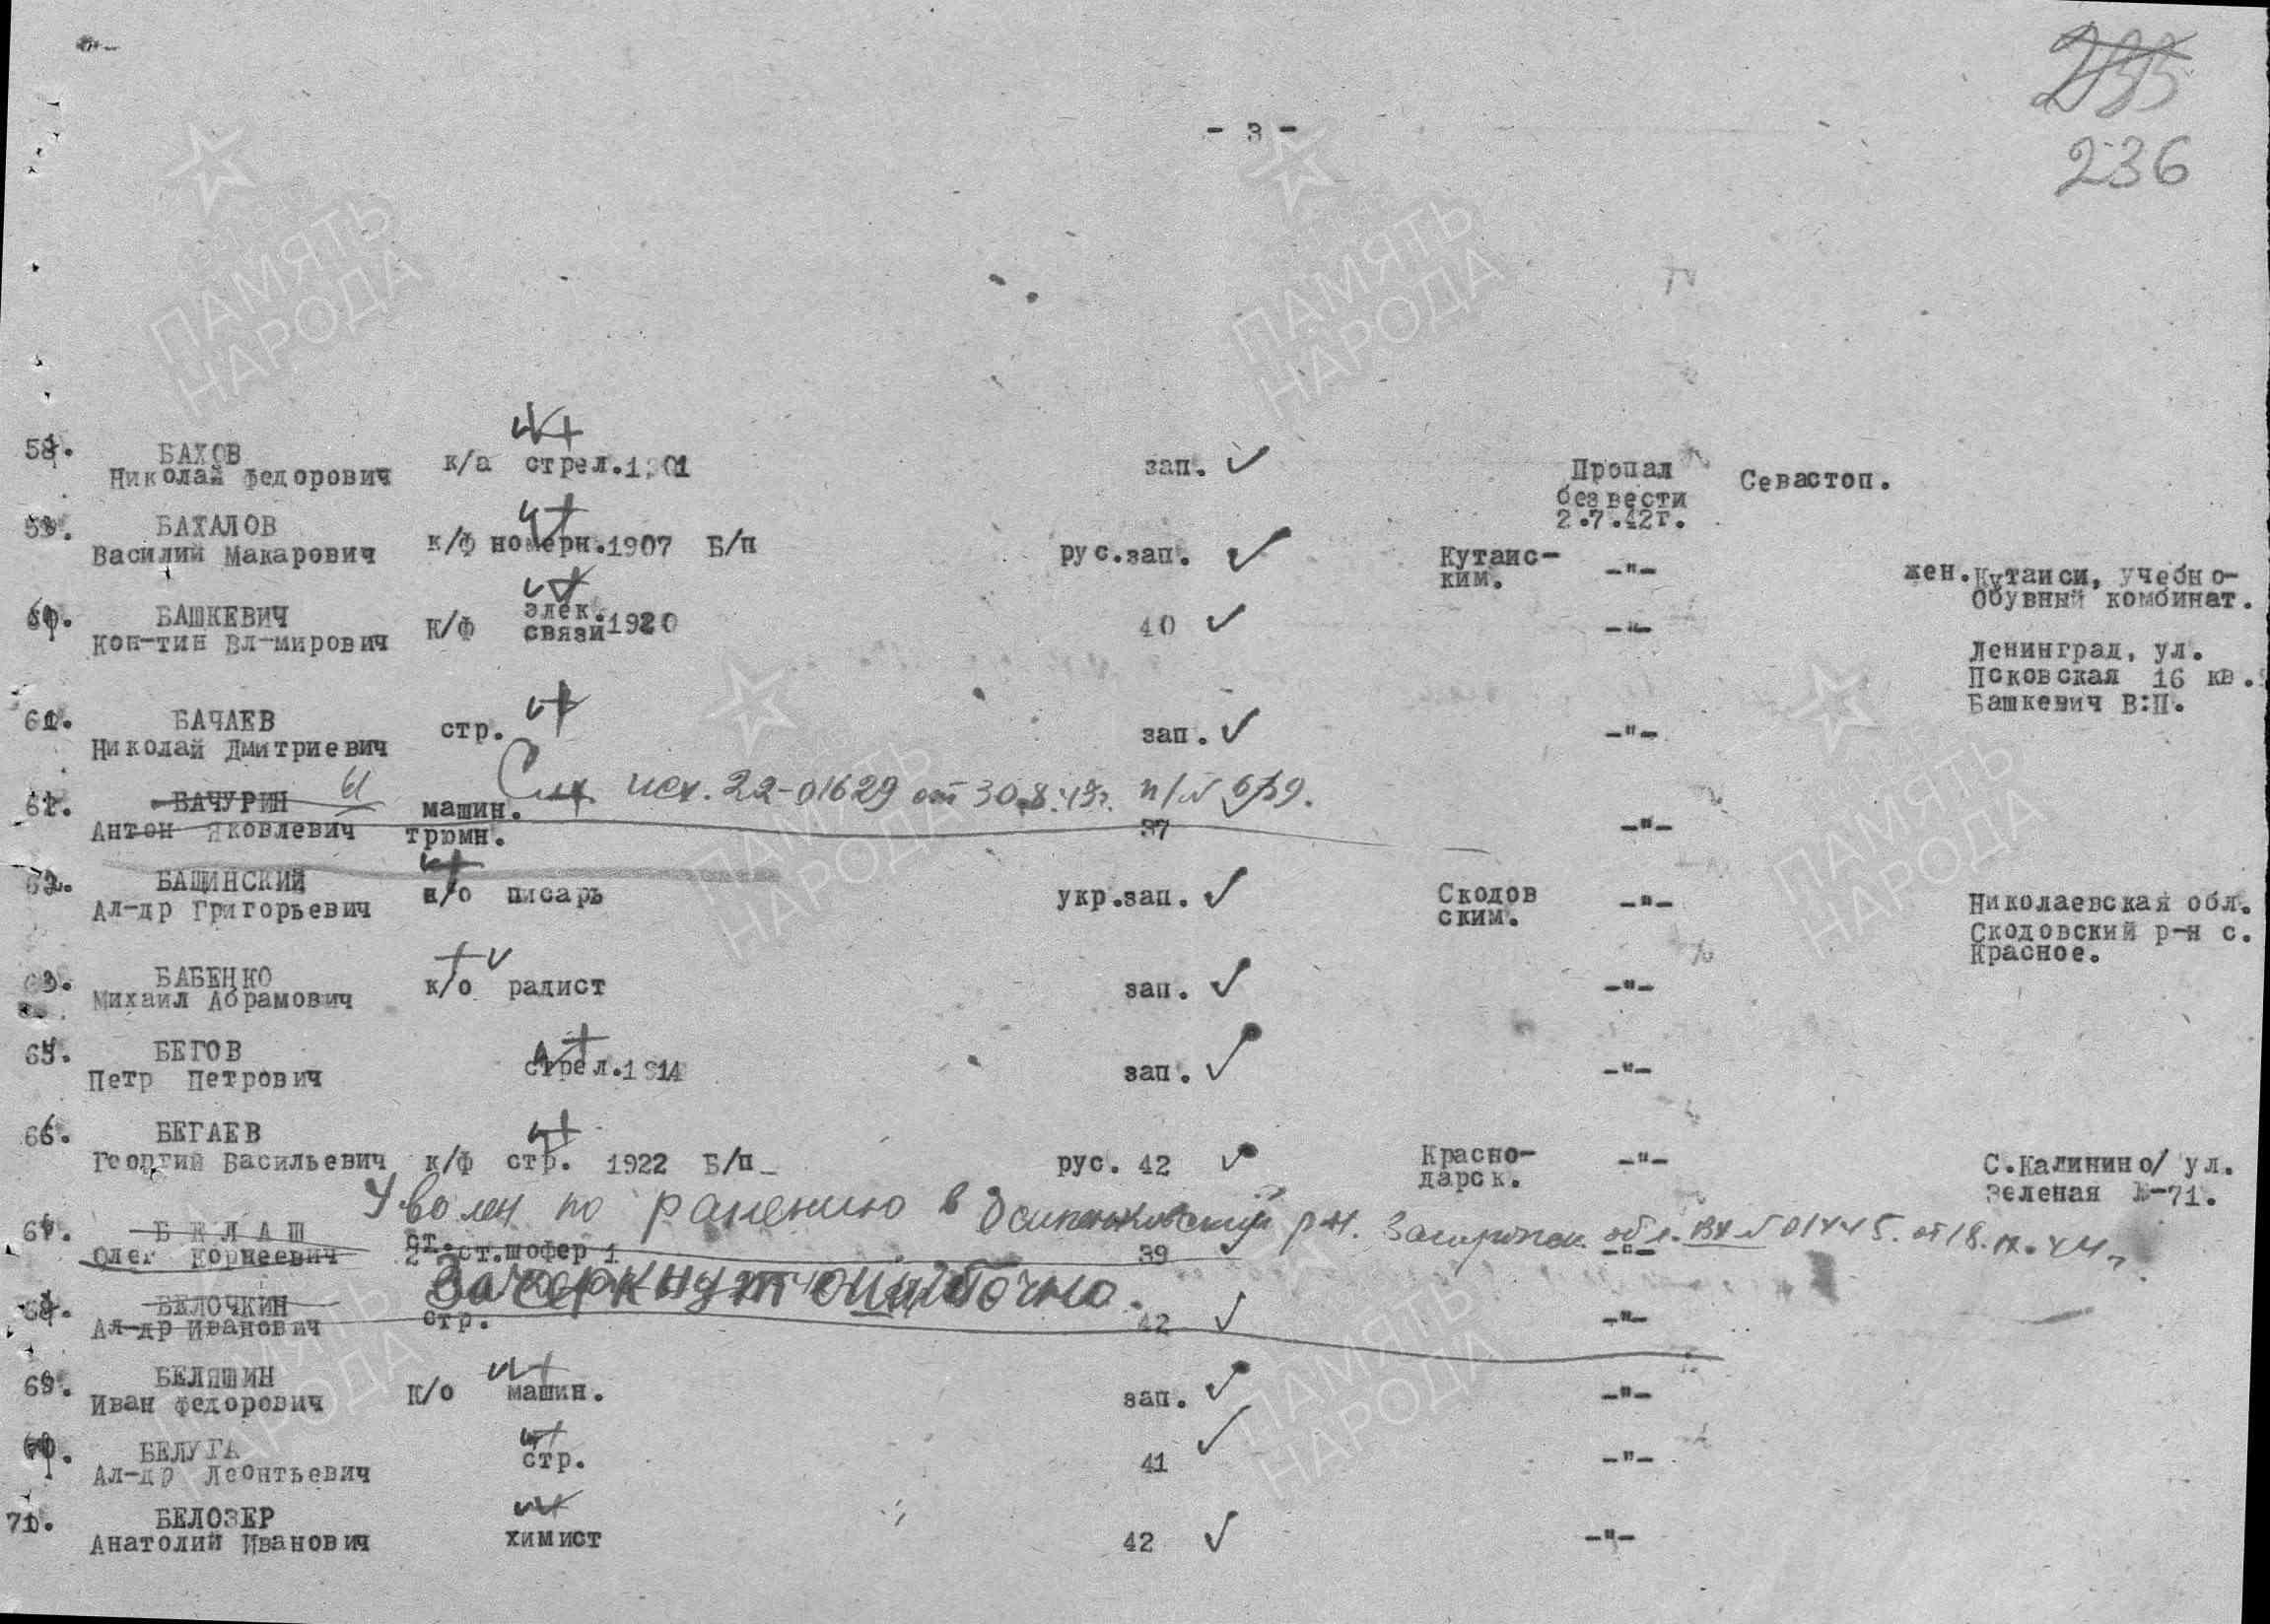 235
236
- 3 -
58. БАХОВ
Николай Федорович к/а стрел. 1901 зап. Пропал без вести 2.7.42г. Севастоп.
59. БАХАЛОВ
Василий Макарович к/ф номерн. 1907 Б/п рус. зап. Кутаис-
ким. -"- жен. Кутаиси, учебно-
Обувный комбинат.
60. БАШКЕВИЧ
Кон-тин Вл-мирович К/ф элек.
связи 1920 40 -"-
Ленинград, ул.
Псковская 16 кв.
Башкевич В:П.
61. БАЧАЕВ
Николай Дмитриевич стр. зап. -"-
См. исх. 22-01629 от 30.8.43г. п/№
61. БАЧУРИН
Антон Яковлевич машин.
трюмн. 37 -"-
62. БАЩИНСКИЙ
Ал-др Григорьевич к/о писарь укр. зап. Скодов
ским. -"- Николаевская обл.
Скодовский р-н с.
Красное.
63. БАБЕНКО
Михаил Абрамович к/о радист зап. -"-
БЕГОВ
Петр Петрович стрел. 1914 зап. -"-
БЕГАЕВ
Георгий Васильевич к/ф стр. 1922 Б/п рус. 42 Красно-
дарск. -"- С.Калинино/ ул.
Зеленая №-71.
Уволен по ранению в Осипенковский р-н. Запорожск. обл. Вх № 01445 от 18.IX.44г
БЕЛАШ
Олег Корнеевич ст.
2 ст. шофер 1 39 -"-
Зачеркнут ошибочно.
БЕЛОЧКИН
Ал-др Иванович стр. 42 -"-
БЕЛЯШИН
Иван Федорович К/о машин. зап. -"-
БЕЛУГА
Ал-др Леонтьевич стр. 41 -"-
БЕЛОЗЕР
Анатолий Иванович химист 42 -"-
ПАМЯТЬ
НАРОДА